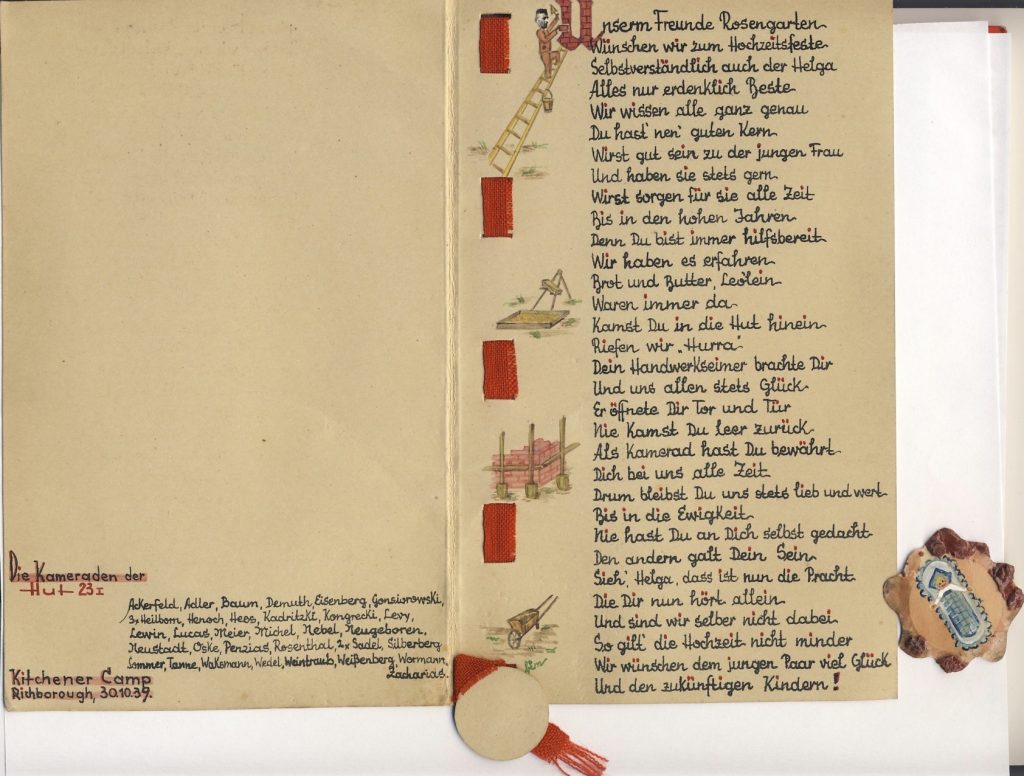 Die Kameraden der
Hut 23 I
Ackerfeld, Adler, Baum, Demuth, Eisenberg, Gonsiorowski,
3x Heilborn, Henoch, Hess, Kadritzki, Kongrecki, Levy,
Lewin, Lucas, Meier, Michel, Nebel, Neugeboren,
Neustadt, Oske, Penzias, Rosenthal, 2x Sadel, Silberberg
Sommer, Tanne, Wakemann, Wedel, Weintraub, Weißenberg, Wormann,
Zacharias.
Kitchener Camp
Richborough, 30.10.39.
Unserm Freunde Rosengarten
Wünschen wir zum Hochzeitsfeste
Selbstverständlich auch der Helga
Alles nur erdenklich Beste
Wir wissen alle ganz genau
Du hast' nen' guten Kern
Wirst gut sein zu der jungen Frau
Und haben sie stets gern
Wirst sorgen für sie alle Zeit
Bis in den hohen Jahren
Denn Du bist immer hilfsbereit
Wir haben es erfahren
Brot und Butter, Leo'lein
Waren immer da
Kamst Du in die Hut hinein
Riefen wir „Hurra"
Dein Handwerkseimer brachte Dir
Und uns allen stets Glück
Er öffnete Dir Tor und Tür
Nie Kamst Du leer zurück
Als Kamerad hast Du bewährt
Dich bei uns alle Zeit
Drum bleibst Du uns stets lieb und wert
Bis in die Ewigkeit
Nie hast Du an Dich selbst gedacht
Den andern galt Dein Sein
Sieh', Helga, dass ist nun die Pracht
Die Dir nun hört allein
Und sind wir selber nicht dabei
So gilt' die Hochzeit nicht minder
Wir wünschen dem jungen Paar viel Glück
Und den zukünftigen Kindern!